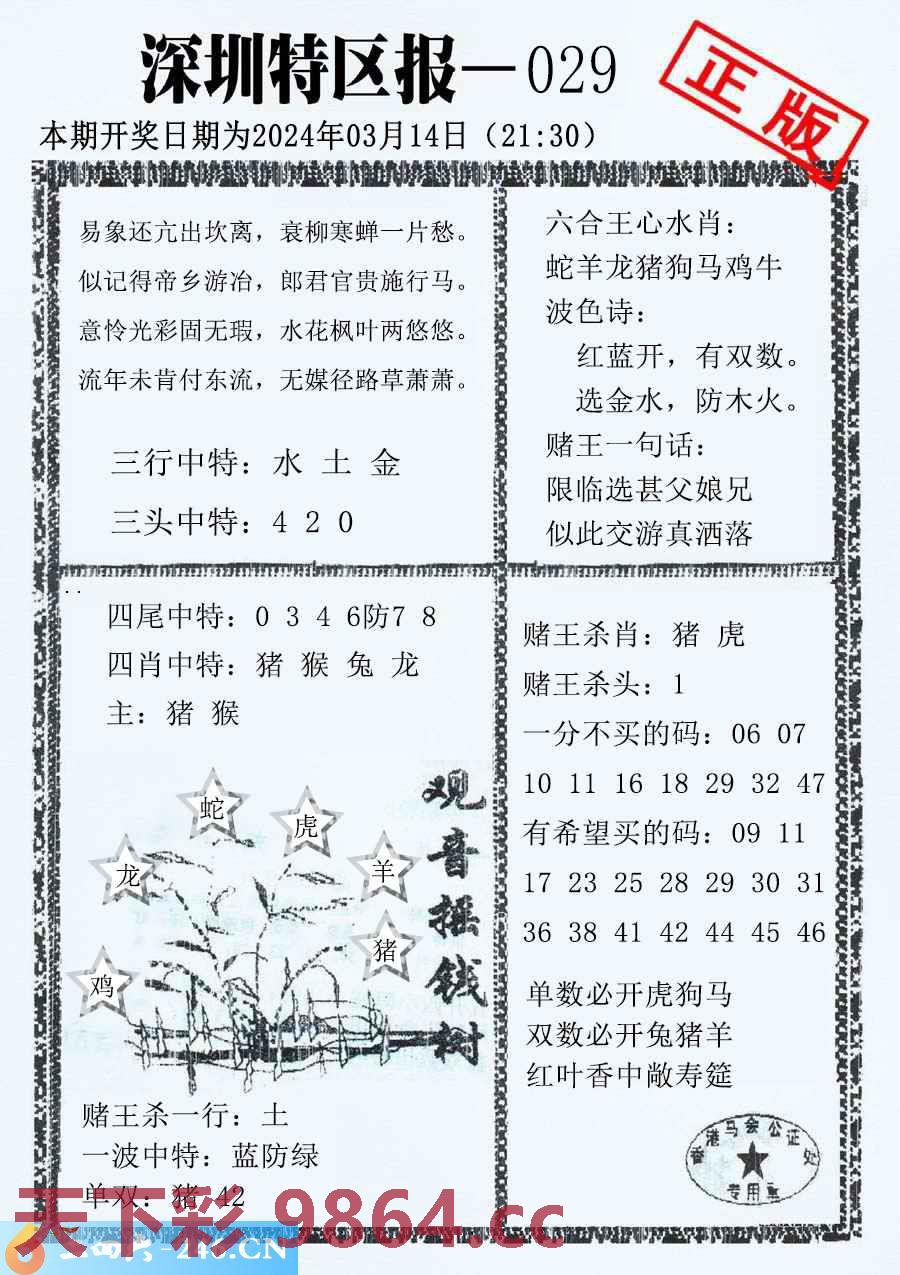 深圳特区报—029
正版
本期开奖日期为2024年03月14日（21:30）
易象还亢出坎离，衰柳寒蝉一片愁。
似记得帝乡游冶，郎君官贵施行马。
意怜光彩固无瑕，水花枫叶两悠悠。
流年未肯付东流，无媒径路草萧萧。
三行中特：水 土 金
三头中特：4 2 0
六合王心水肖：
蛇羊龙猪狗马鸡牛
波色诗：
红蓝开，有双数。
选金水，防木火。
赌王一句话：
限临选甚父娘兄
似此交游真洒落
四尾中特：0 3 4 6防7 8
四肖中特：猪 猴 兔 龙
主：猪 猴
蛇
虎
龙
羊
猪
鸡
观音摇钱树
赌王杀一行：土
一波中特：蓝防绿
单双：猪 42
赌王杀肖：猪 虎
赌王杀头：1
一分不买的码：06 07
10 11 16 18 29 32 47
有希望买的码：09 11
17 23 25 28 29 30 31
36 38 41 42 44 45 46
单数必开虎狗马
双数必开兔猪羊
红叶香中敞寿筵
香港马会公证处
专用章
天下彩 9864.cc
-246.CN